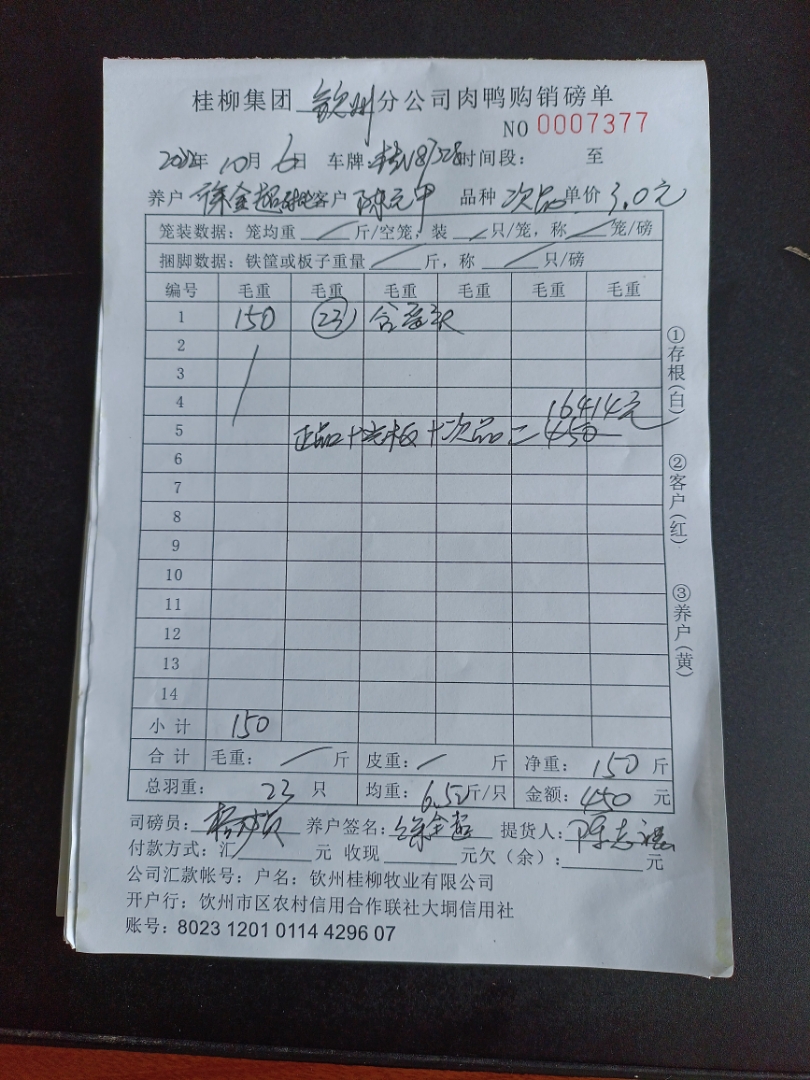 桂柳集团 钦州 分公司肉鸭购销磅单
NO 0007377
2022年 10月 6日 车牌: 时间段: 至
养户 徐金超 客户 陈元甲 品种 次品 单价 3.0元
笼装数据: 笼均重 斤/空笼, 装 只/笼, 称 笼/磅
捆脚数据: 铁筐或板子重量 斤, 称 只/磅
编号 毛重 毛重 毛重 毛重 毛重 毛重
1 150 (23)
2
3
4 16414元
5 正品+光板+次品= 450
6
7
8
9
10
11
12
13
14
小计 150
合计 毛重: 斤 皮重: 斤 净重: 150 斤
总羽重: 23 只 均重: 6.52斤/只 金额: 450 元
司磅员: 养户签名: 徐金超 提货人:
付款方式: 汇 元 收现 元欠(余): 元
公司汇款帐号: 户名: 钦州桂柳牧业有限公司
开户行: 钦州市区农村信用合作联社大垌信用社
账号: 8023 1201 0114 4296 07
①存根(白)
②客户(红)
③养户(黄)